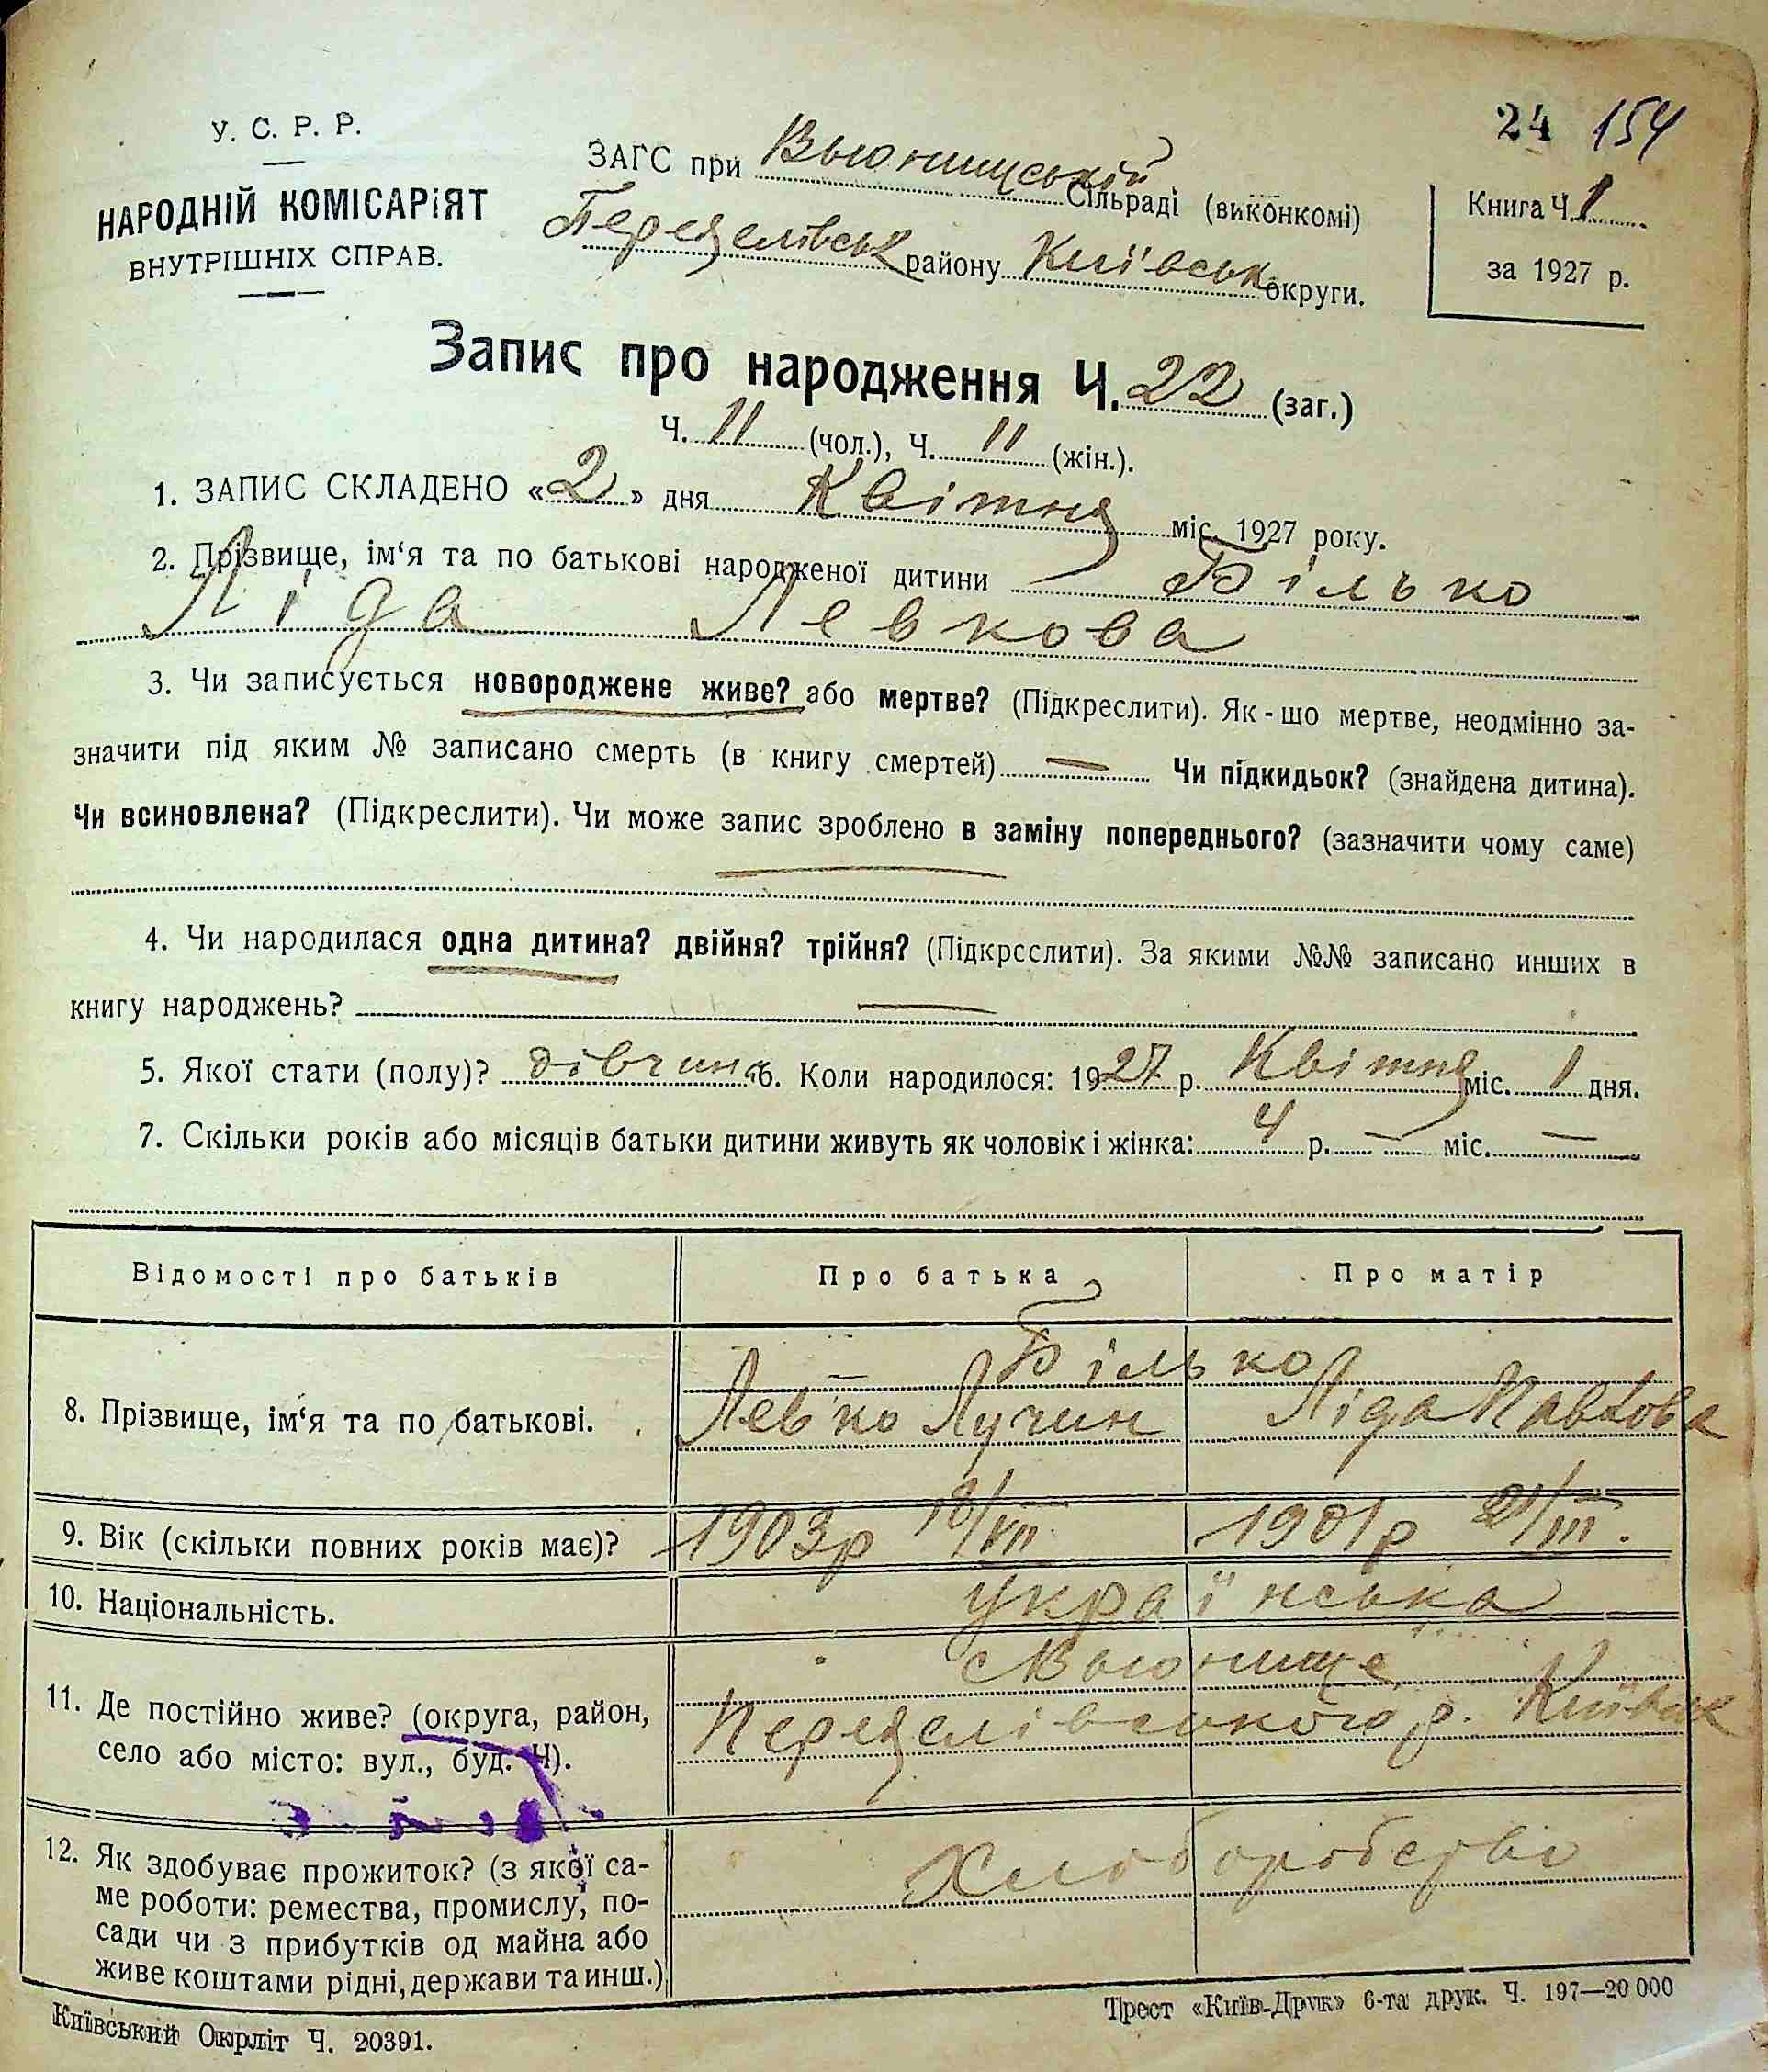 24 154
У. С. Р. Р.
НАРОДНІЙ КОМІСАРІЯТ
ВНУТРІШНІХ СПРАВ.
ЗАГС при Вьюнищській Сільраді (виконкомі)
Переяслівськ району Київськ округи.
Книга Ч. 1
за 1927 р.
Запис про народження Ч. 22 (заг.)
Ч. 11 (чол.), Ч. 11 (жін.).
1. ЗАПИС СКЛАДЕНО «2» дня Квітня міс. 1927 року.
2. Прізвище, ім‘я та по батькові народженої дитини Білько
Ліда Левкова
3. Чи записується новороджене живе? або мертве? (Підкреслити). Як-що мертве, неодмінно за-
значити під яким № записано смерть (в книгу смертей) — Чи підкидьок? (знайдена дитина).
Чи всиновлена? (Підкреслити). Чи може запис зроблено в заміну попереднього? (зазначити чому саме)
—
4. Чи народилася одна дитина? двійня? трійня? (Підкрсслити). За якими №№ записано инших в
книгу народжень? —
5. Якої стати (полу)? дівчина 6. Коли народилося: 1927 р. Квітня міс. 1 дня.
7. Скільки років або місяців батьки дитини живуть як чоловік і жінка: 4 р. — міс. —
Відомості про батьків Про батька Про матір
8. Прізвище, ім‘я та по батькові. Білько
Левко Лучин Ліда Павлова
9. Вік (скільки повних років має)? 1903р 18/VII 1901р 21/III.
10. Національність. українська
11. Де постійно живе? (округа, район,
село або місто: вул., буд. Ч).
с Вьюнище
Переяслівського р. Київськ
12. Як здобуває прожиток? (з якої са-
ме роботи: ремества, промислу, по-
сади чи з прибутків од майна або
живе коштами рідні, держави та инш.)
Хлоборобство
Київський Окрліт Ч. 20391.
Трест «Київ-Друк» 6-та друк. Ч. 197—20 000